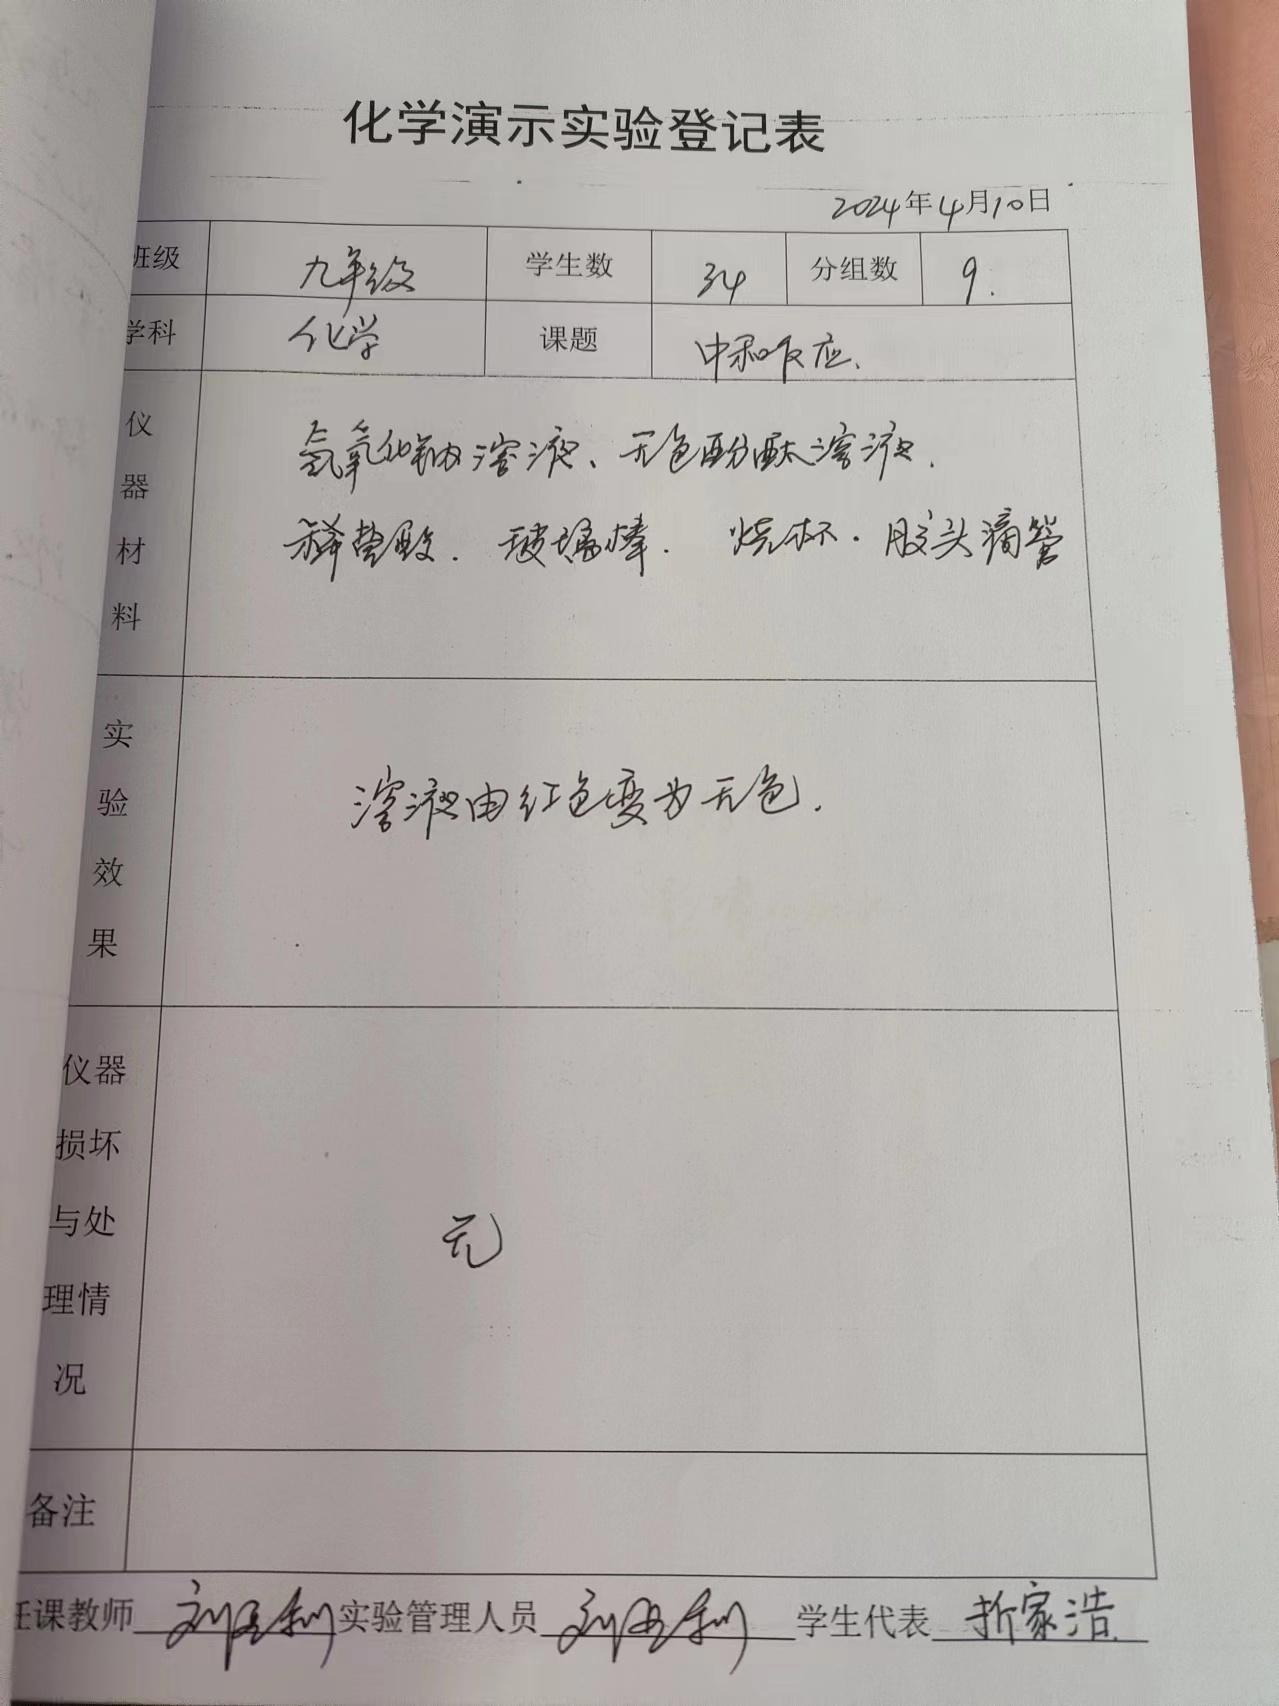 化学演示实验登记表
2024年4月10日
班级 九年级 学生数 34 分组数 9.
学科 化学 课题 中和反应.
仪器材料
氢氧化钠溶液、无色酚酞溶液.
稀盐酸. 玻璃棒. 烧杯. 胶头滴管
实验效果
溶液由红色变为无色.
仪器损坏与处理情况
无
备注
任课教师 实验管理人员 学生代表 折家浩